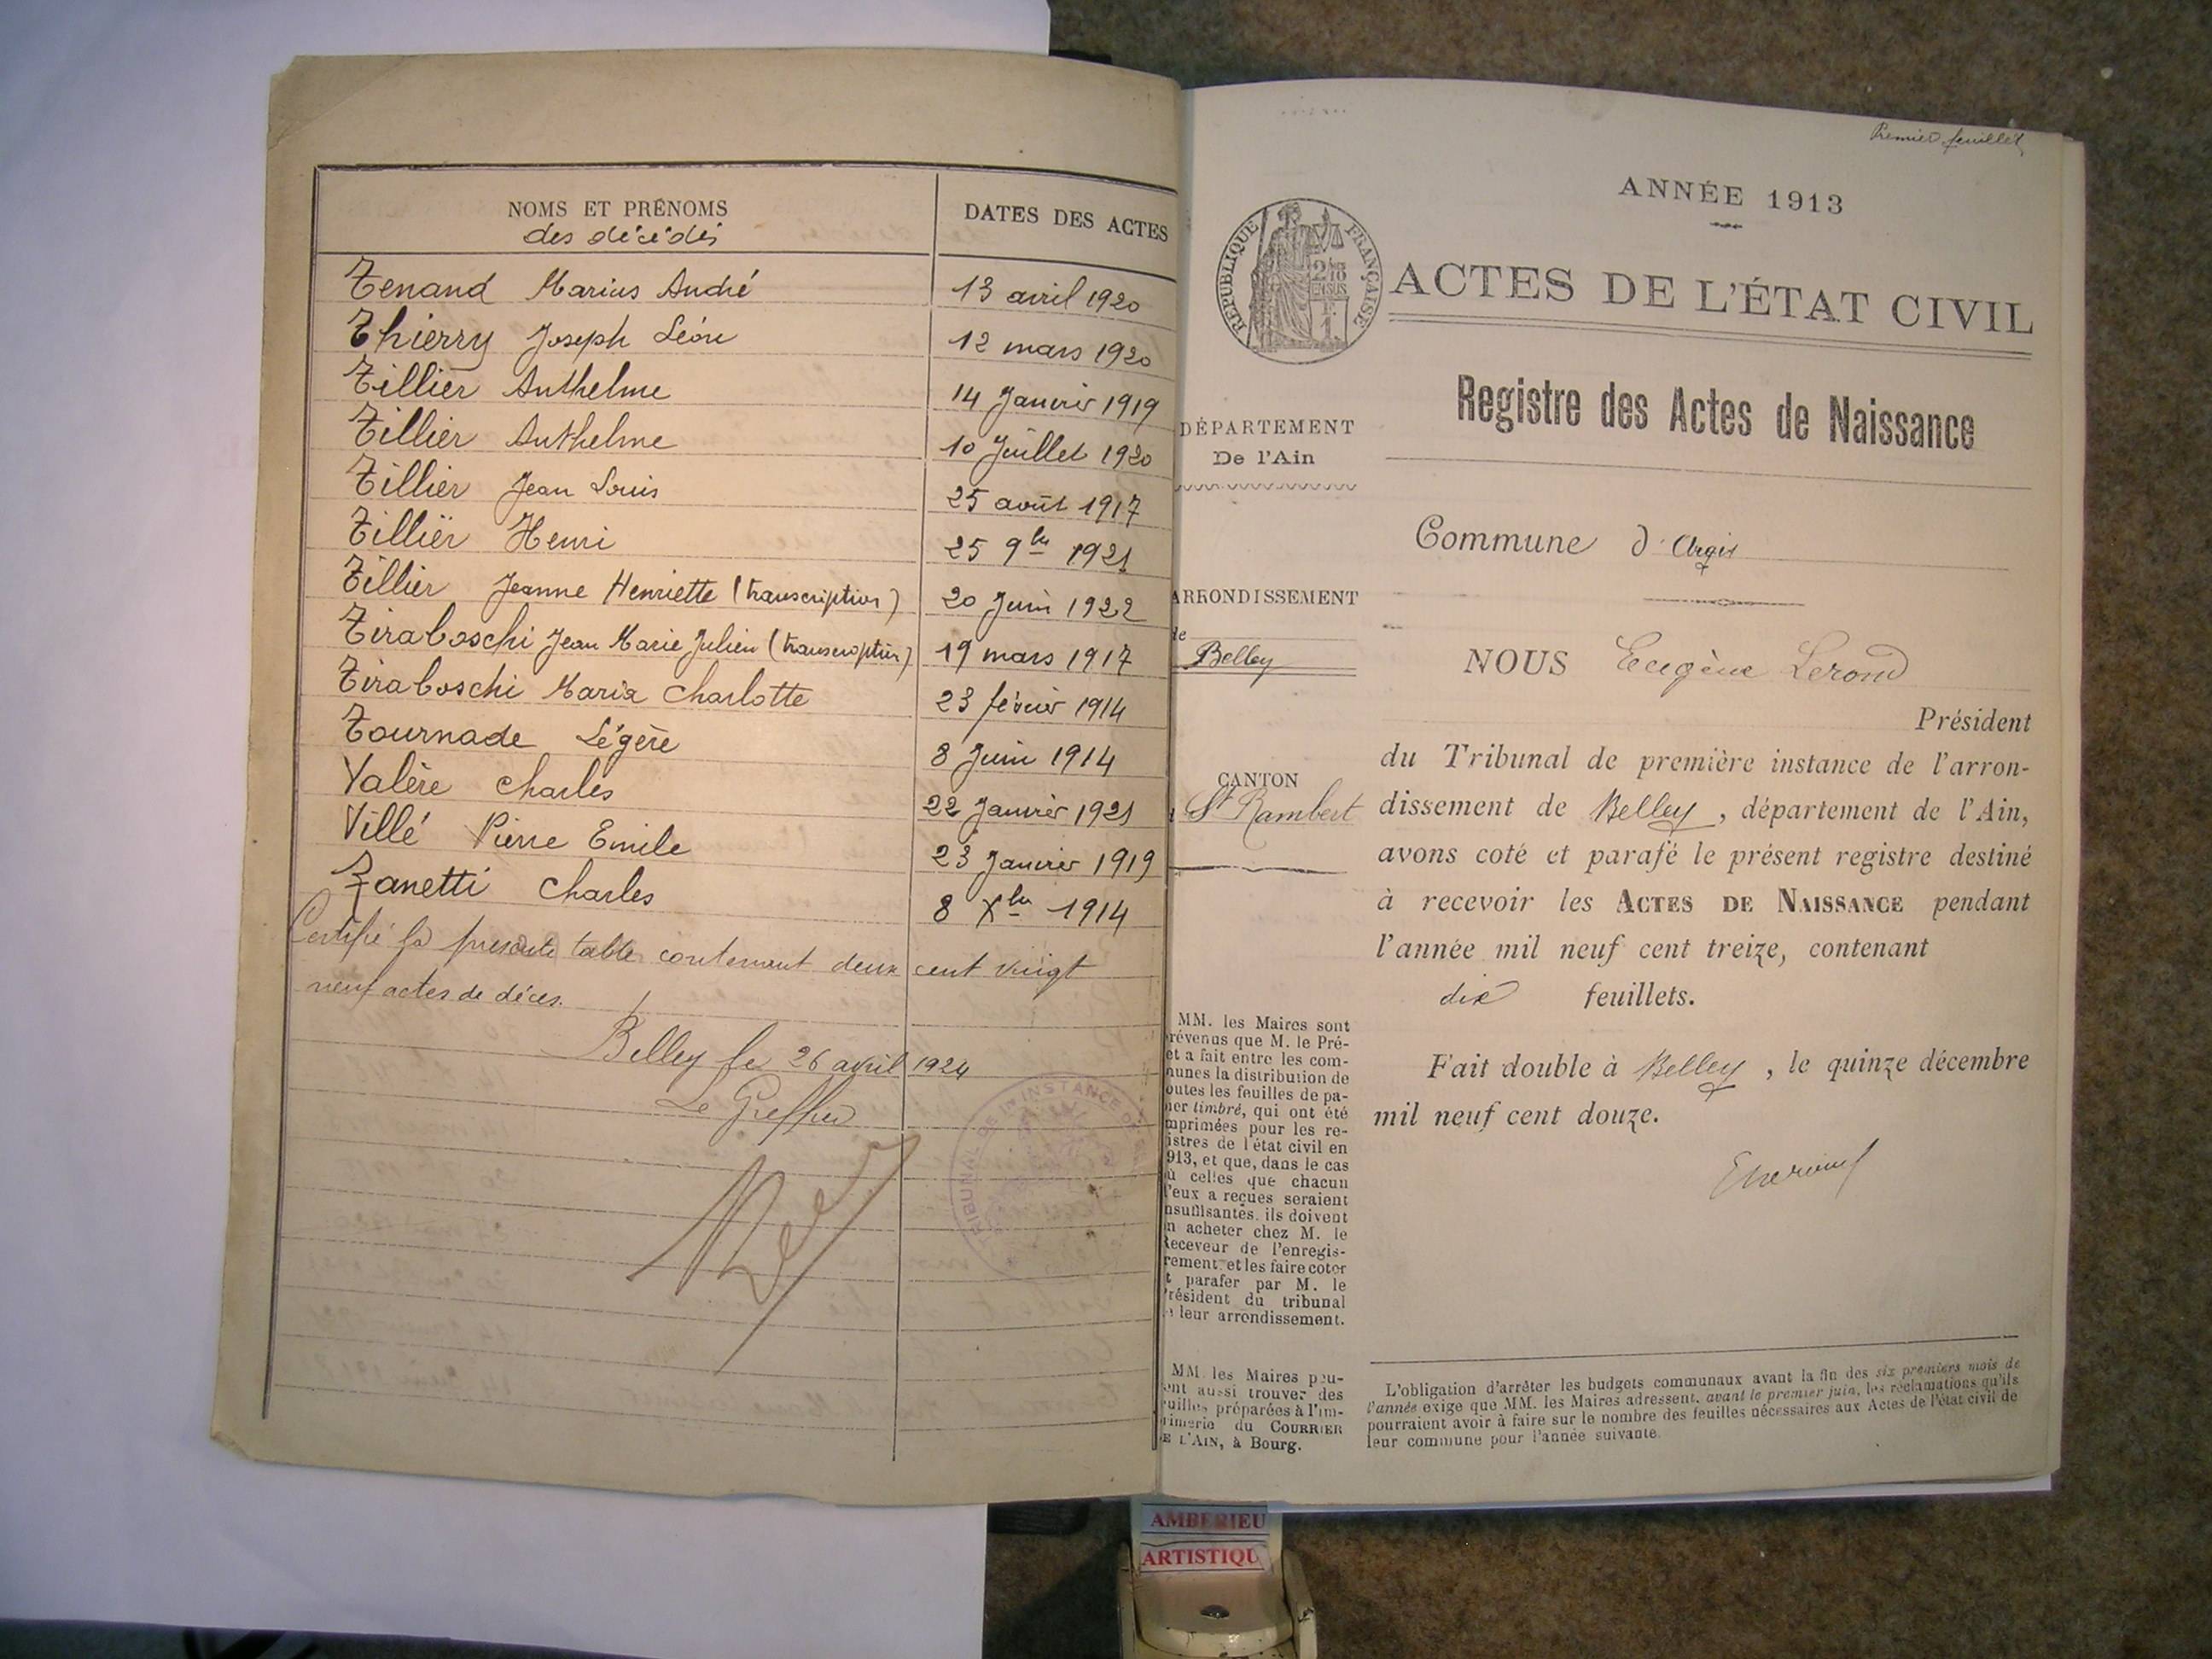 NOMS ET PRÉNOMS
des décédés
DATES DES ACTES
Tenand Marius André 13 avril 1920
Thierry Joseph Léon 12 mars 1920
Tillier Anthelme 14 Janvier 1919
Tillier Anthelme 10 Juillet 1920
Tillier Jean Louis 25 août 1917
Tillier Henri 25 9bre 1921
Tillier Jeanne Henriette (transcription) 20 Juin 1922
Tiraboschi Jean Marie Julien (transcription) 19 mars 1917
Tiraboschi Maria Charlotte 23 février 1914
Tournade Légère 8 Juin 1914
Valère Charles 22 Janvier 1921
Villé Pierre Emile 23 Janvier 1919
Zanetti Charles 8 Xbre 1914
Certifié la présente table contenant deux cent vingt
neuf actes de décès.
Belley le 26 avril 1924
Le Greffier
TRIBUNAL DE 1re INSTANCE DE
Premier feuillet
ANNÉE 1913
RÉPUBLIQUE FRANÇAISE
ACTES DE L'ÉTAT CIVIL
Registre des Actes de Naissance
DÉPARTEMENT
De l'Ain
Commune d'Argis
ARRONDISSEMENT
de
Belley
CANTON
St Rambert
NOUS Eugène Lerond
Président
du Tribunal de première instance de l'arron-
dissement de Belley, département de l'Ain,
avons coté et parafé le présent registre destiné
à recevoir les ACTES DE NAISSANCE pendant
l'année mil neuf cent treize, contenant
dix feuillets.
Fait double à Belley, le quinze décembre
mil neuf cent douze.
MM. les Maires sont
révenus que M. le Pré-
et a fait entre les com-
unes la distribution de
outes les feuilles de pa-
ier timbré, qui ont été
mprimées pour les re-
istres de l'état civil en
913, et que, dans le cas
ù celles que chacun
'eux a reçues seraient
nsuffisantes, ils doivent
n acheter chez M. le
Receveur de l'enregis-
rement, et les faire coter
t parafer par M. le
résident du tribunal
e leur arrondissement.
MM. les Maires peu-
ent aussi trouver des
euilles préparées à l'im-
rimerie du COURRIER
E L'AIN, à Bourg.
L'obligation d'arrêter les budgets communaux avant la fin des six premiers mois de
l'année exige que MM. les Maires adressent, avant le premier juin, les réclamations qu'ils
pourraient avoir à faire sur le nombre des feuilles nécessaires aux Actes de l'état civil de
leur commune pour l'année suivante.
AMBERIEU
ARTISTIQU